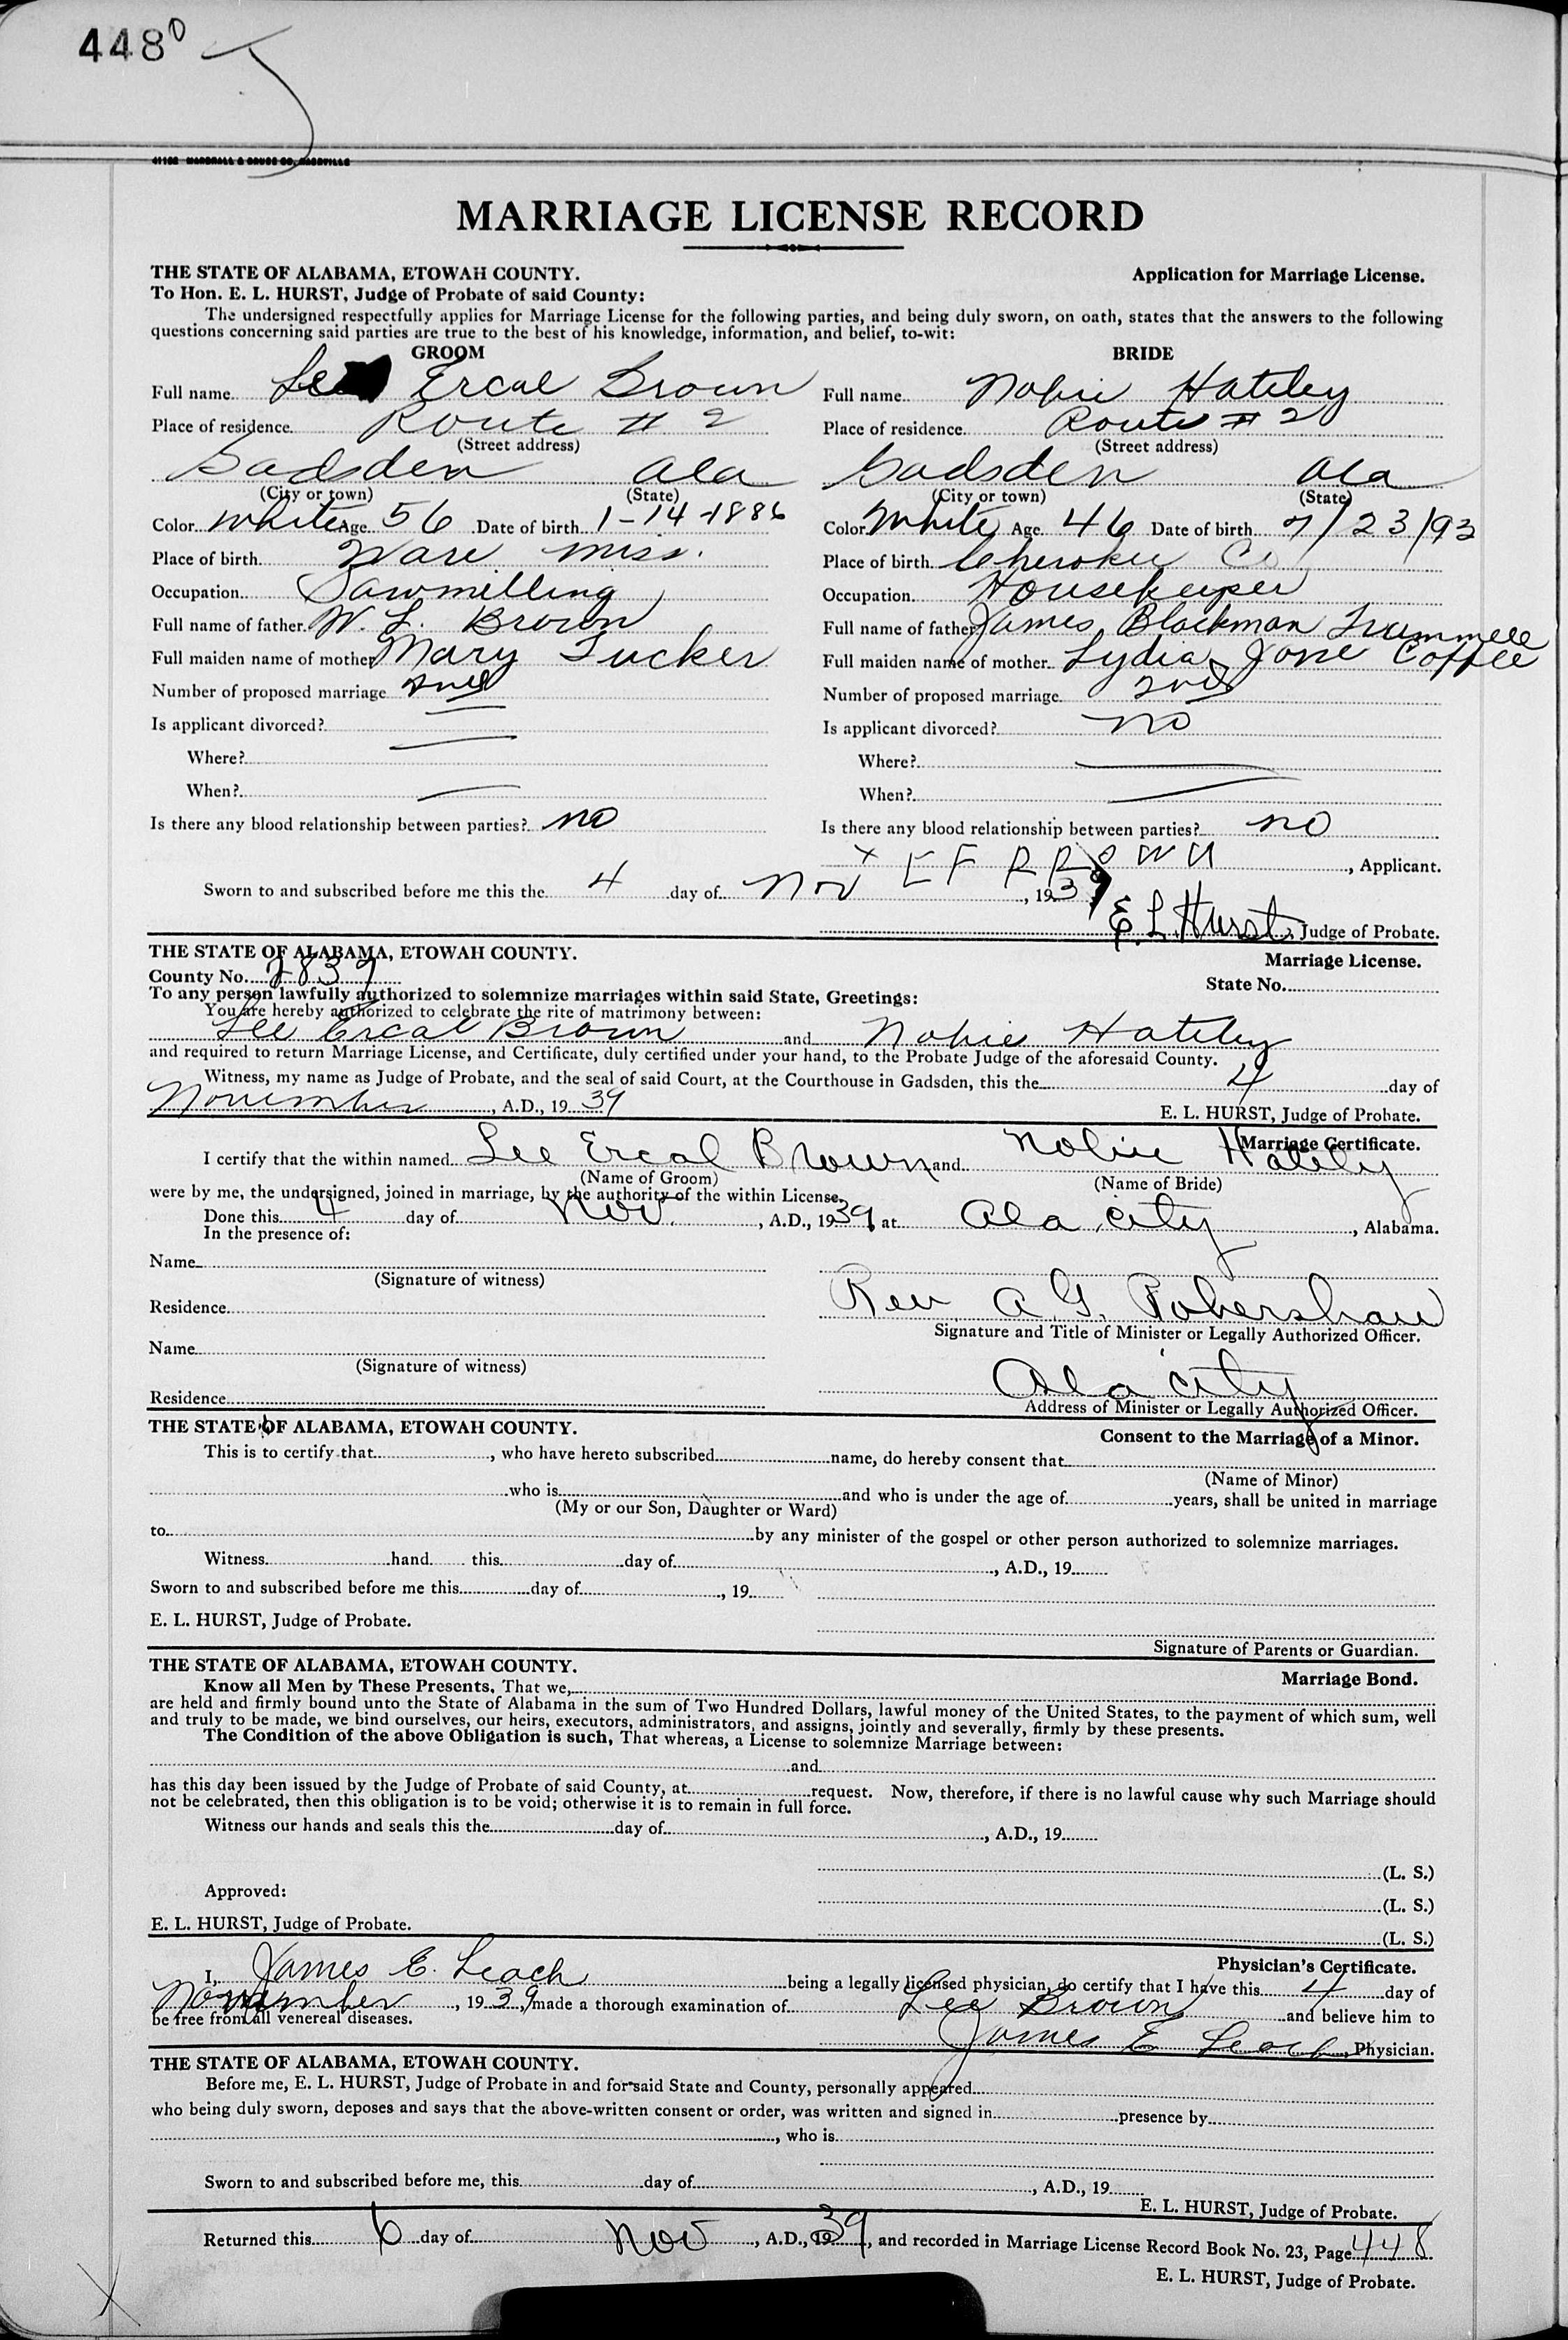 448
MARSHALL & BRUCE CO., NASHVILLE
MARRIAGE LICENSE RECORD
THE STATE OF ALABAMA, ETOWAH COUNTY. Application for Marriage License.
To Hon. E. L. HURST, Judge of Probate of said County:
The undersigned respectfully applies for Marriage License for the following parties, and being duly sworn, on oath, states that the answers to the following
questions concerning said parties are true to the best of his knowledge, information, and belief, to-wit:
GROOM BRIDE
Full name Lee Ercal Brown Full name Nobie Hatley
Place of residence Route # 2 Place of residence Route # 2
(Street address) (Street address)
Gadsden Ala Gadsden Ala
(City or town) (State) (City or town) (State)
Color White Age 56 Date of birth 1-14-1886 Color White Age 46 Date of birth 7/23/93
Place of birth Ware Miss. Place of birth Cherokee Co
Occupation Sawmilling Occupation Housekeeper
Full name of father W. L. Brown Full name of father James Blackman Trammell
Full maiden name of mother Mary Tucker Full maiden name of mother Lydia Jane Coffee
Number of proposed marriage 2nd Number of proposed marriage 2nd
Is applicant divorced? Is applicant divorced? no
Where? Where?
When? When?
Is there any blood relationship between parties? no Is there any blood relationship between parties? no
X , Applicant.
Sworn to and subscribed before me this the 4 day of Nov , 1939
E. L. Hurst, Judge of Probate.
THE STATE OF ALABAMA, ETOWAH COUNTY. Marriage License.
County No. 2839 State No.
To any person lawfully authorized to solemnize marriages within said State, Greetings:
You are hereby authorized to celebrate the rite of matrimony between:
Lee Ercal Brown and Nobie Hatley
and required to return Marriage License, and Certificate, duly certified under your hand, to the Probate Judge of the aforesaid County.
Witness, my name as Judge of Probate, and the seal of said Court, at the Courthouse in Gadsden, this the 4 day of
November , A.D., 19 39 E. L. HURST, Judge of Probate.
Marriage Certificate.
I certify that the within named Lee Ercal Brown and Nobie Hatley
(Name of Groom) (Name of Bride)
were by me, the undersigned, joined in marriage, by the authority of the within License.
Done this 4 day of Nov. , A.D., 1939 at Ala city , Alabama.
In the presence of:
Name
(Signature of witness)
Rev A G.
Residence Signature and Title of Minister or Legally Authorized Officer.
Name
(Signature of witness) Ala city
Residence Address of Minister or Legally Authorized Officer.
THE STATE OF ALABAMA, ETOWAH COUNTY. Consent to the Marriage of a Minor.
This is to certify that , who have hereto subscribed name, do hereby consent that
(Name of Minor)
who is and who is under the age of years, shall be united in marriage
(My or our Son, Daughter or Ward)
to by any minister of the gospel or other person authorized to solemnize marriages.
Witness hand this day of , A.D., 19
Sworn to and subscribed before me this day of , 19
E. L. HURST, Judge of Probate.
Signature of Parents or Guardian.
THE STATE OF ALABAMA, ETOWAH COUNTY. Marriage Bond.
Know all Men by These Presents, That we,
are held and firmly bound unto the State of Alabama in the sum of Two Hundred Dollars, lawful money of the United States, to the payment of which sum, well
and truly to be made, we bind ourselves, our heirs, executors, administrators, and assigns, jointly and severally, firmly by these presents.
The Condition of the above Obligation is such, That whereas, a License to solemnize Marriage between:
and
has this day been issued by the Judge of Probate of said County, at request. Now, therefore, if there is no lawful cause why such Marriage should
not be celebrated, then this obligation is to be void; otherwise it is to remain in full force.
Witness our hands and seals this the day of , A.D., 19
(L. S.)
Approved: (L. S.)
E. L. HURST, Judge of Probate. (L. S.)
Physician's Certificate.
I, James E. Leach being a legally licensed physician, do certify that I have this 4 day of
November , 1939, made a thorough examination of Lee Brown and believe him to
be free from all venereal diseases.
James E Leach, Physician.
THE STATE OF ALABAMA, ETOWAH COUNTY.
Before me, E. L. HURST, Judge of Probate in and for said State and County, personally appeared
who being duly sworn, deposes and says that the above-written consent or order, was written and signed in presence by
, who is
Sworn to and subscribed before me, this day of , A.D., 19
E. L. HURST, Judge of Probate.
Returned this 6 day of Nov , A.D., 1939, and recorded in Marriage License Record Book No. 23, Page 448
E. L. HURST, Judge of Probate.